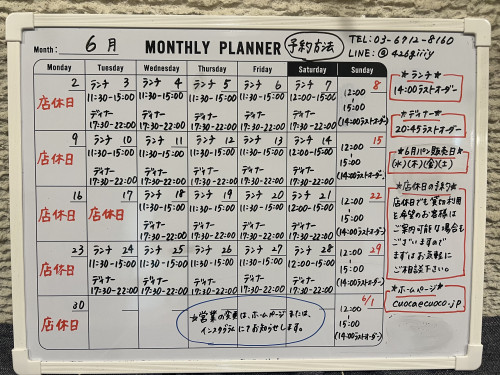 Month: 6月 MONTHLY PLANNER 予約方法 TEL:03-6712-8160
LINE:@426giiiy
Monday Tuesday Wednesday Thursday Friday Saturday Sunday
2 店休日
3 ランチ 11:30-15:00 ディナー 17:30-22:00
4 ランチ 11:30-15:00 ディナー 17:30-22:00
5 ランチ 11:30-15:00 ディナー 17:30-22:00
6 ランチ 11:30-15:00 ディナー 17:30-22:00
7 ランチ 11:30-15:00 ディナー 17:30-22:00
8 12:00-15:00 (14:00ラストオーダー)
9 店休日
10 ランチ 11:30-15:00 ディナー 17:30-22:00
11 ランチ 11:30-15:00 ディナー 17:30-22:00
12 ランチ 11:30-15:00 ディナー 17:30-22:00
13 ランチ 11:30-15:00 ディナー 17:30-22:00
14 ランチ 11:30-15:00 ディナー 17:30-22:00
15 12:00-15:00 (14:00ラストオーダー)
16 店休日
17 店休日
18 ランチ 11:30-15:00 ディナー 17:30-22:00
19 ランチ 11:30-15:00 ディナー 17:30-22:00
20 ランチ 11:30-15:00 ディナー 17:30-22:00
21 ランチ 11:30-15:00 ディナー 17:30-22:00
22 12:00-15:00 (14:00ラストオーダー)
23 店休日
24 ランチ 11:30-15:00 ディナー 17:30-22:00
25 ランチ 11:30-15:00 ディナー 17:30-22:00
26 ランチ 11:30-15:00 ディナー 17:30-22:00
27 ランチ 11:30-15:00 ディナー 17:30-22:00
28 ランチ 11:30-15:00 ディナー 17:30-22:00
29 12:00-15:00 (14:00ラストオーダー)
30 店休日
※営業の変更は、ホームページまたは、
インスタグラムにてお知らせします。
6/1 12:00-15:00 (14:00ラストオーダー)
*ランチ*
14:00ラストオーダー
*ディナー*
20:45ラストオーダー
*6月パン販売日*
(水)(木)(金)(土)
*店休日の予約*
店休日でも貸切利用
を希望のお客様は
ご案内可能な場合も
ございますので
まずはお気軽に
ご相談下さい。
*ホームページ*
cuocaecuoco.jp